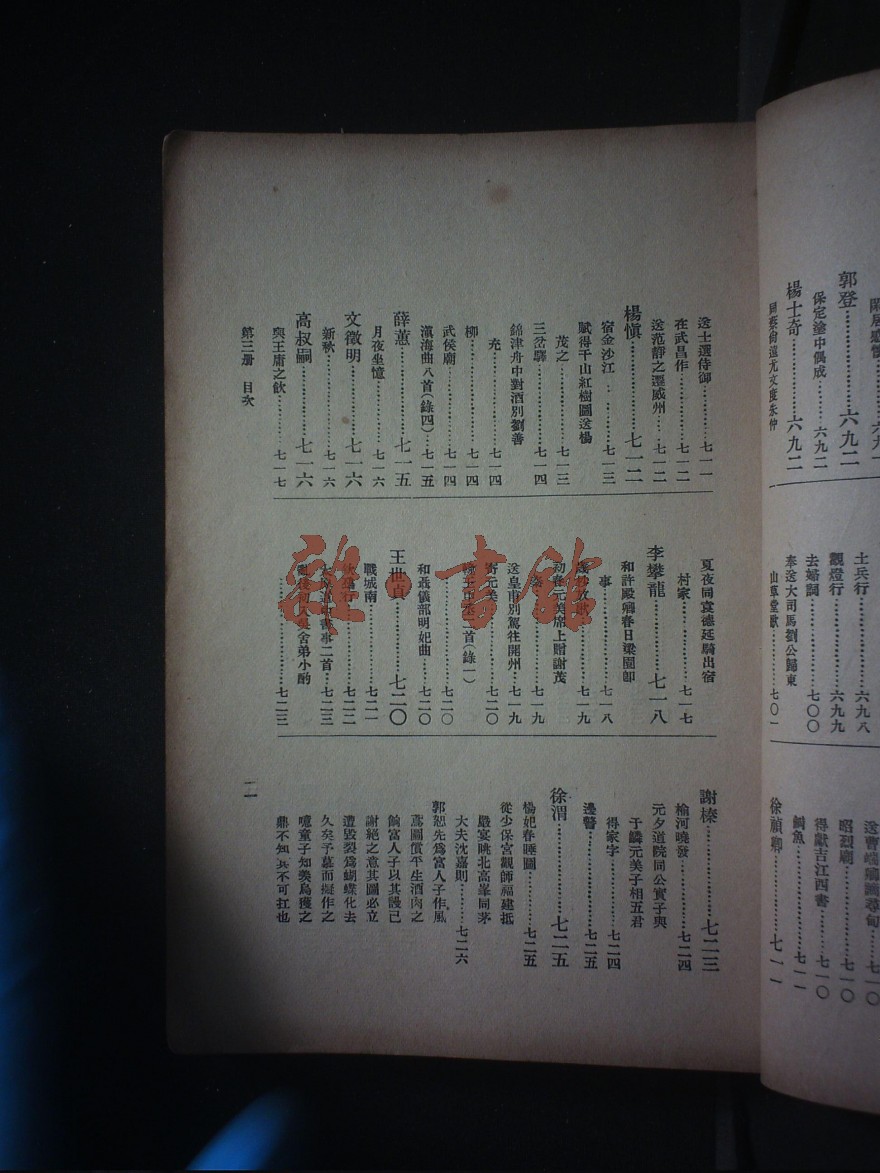 送士選侍御…………七一一
在武昌作…………七一二
送范靜之遷威州……七一二
楊愼…………七一二
宿金沙江…………七一三
賦得千山紅樹圖送楊
茂之…………七一三
三岔驛…………七一四
錦津舟中對酒別劉善
充…………七一四
柳…………七一四
武侯廟…………七一四
滇海曲八首(錄四)…七一五
薛蕙…………七一五
月夜坐憶…………七一六
文徵明…………七一六
新秋…………七一六
高叔嗣…………七一六
與王庸之飲…………七一七
第三册　目次
夏夜同袁德廷騎出宿
村家…………七一七
李攀龍…………七一八
和許殿卿春日梁園卽
事…………七一八
歲杪放歌…………七一九
初春元美席上贈謝茂
秦…………七一九
送皇甫別駕往開州…七一九
寄元美…………七二〇
二首(錄一)
…………七二〇
和聶儀部明妃曲……七二〇
王世貞…………七二〇
戰城南…………七二一
行…………七二二
書事二首…七二三
舍弟小酌
…………七二三
一一
謝榛…………七二三
榆河曉發…………七二四
元夕道院同公實子與
于鱗元美子相五君
得家字…………七二四
邊警…………七二五
徐渭…………七二五
楊妃春睡圖…………七二五
從少保宮觀師福建抵
嚴宴眺北高峯同茅
大夫沈嘉則………七二六
郭恕先爲富人子作風
鳶圖償平生酒肉之
餉富人子以其謾己
謝絕之意其圖必立
遭毀裂爲蝴蝶化去
久矣予慕而擬作之
噫童子知羨烏獲之
鼎不知其不可扛也
六九二
郭登…………六九二
保定塗中偶成……六九二
楊士奇…………六九二
土兵行…………六九八
觀燈行…………六九九
去婦詞…………七〇〇
奉送大司馬劉公歸東
山草堂歌…………七〇一
七一〇
昭烈廟…………七一〇
得獻吉江西書……七一〇
鰣魚…………七一一
徐禎卿…………七一一